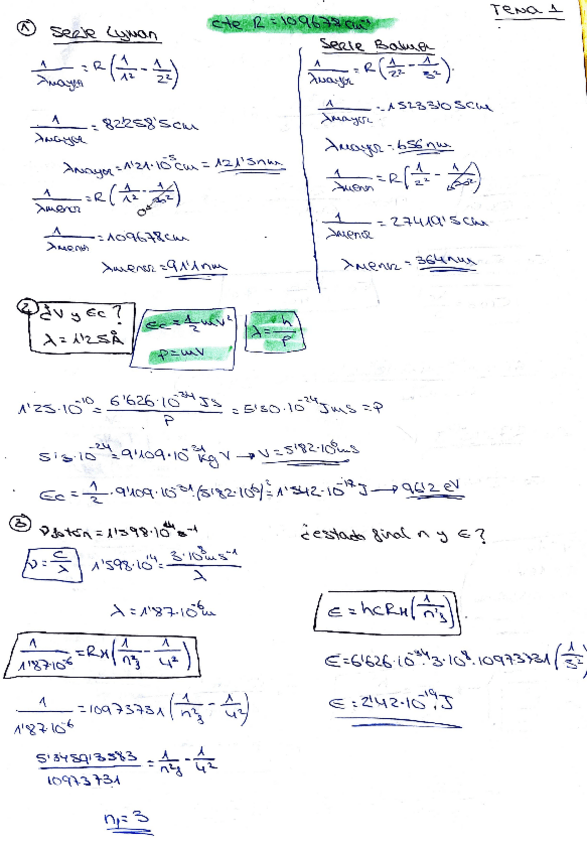 Tema 1
cte R = 109678 cm⁻¹
① Serie Lyman
1/λmayor = R(1/1² - 1/2²)
1/λmayor = 82258'5 cm
λmayor = 1'21·10⁻⁵ cm = 121'5 nm
1/λmenor = R(1/1² - 1/∞²)
0
1/λmenor = 109678 cm
λmenor = 91'1 nm
Serie Balmer
1/λmayor = R(1/2² - 1/3²)
1/λmayor = 15233'05 cm
λmayor = 656 nm
1/λmenor = R(1/2² - 1/∞²)
1/λmenor = 27419'5 cm
λmenor = 364 nm
② ¿V y Ec?
λ = 1'25 Å
Ec = 1/2 mv²
p = mv
λ = h/p
1'25·10⁻¹⁰ = 6'626·10⁻³⁴ Js / p = 5'30·10⁻²⁴ Jms = p
= 9'109·10⁻³¹ kg V → V = 5'82·10⁶ ms
Ec = 1/2 · 9'109·10⁻³¹ · (5'82·10⁶)² = 1'542·10⁻¹⁷ J → 96'2 eV
③ = 1'598·10¹⁴ s⁻¹
¿estado final n y E?
ν = c/λ
1'598·10¹⁴ = 3·10⁸ ms⁻¹ / λ
λ = 1'87·10⁻⁶ m
1/1'87·10⁻⁶ = RH(1/n²f - 1/4²)
1/1'87·10⁻⁶ = 10973731(1/n²f - 1/4²)
/ 10973731 = 1/n²f - 1/4²
nf = 3
E = hcRH(1/n²f)
E = 6'626·10⁻³⁴·3·10⁸·10973731(1/3²)
E = 2'42·10⁻¹⁹ J